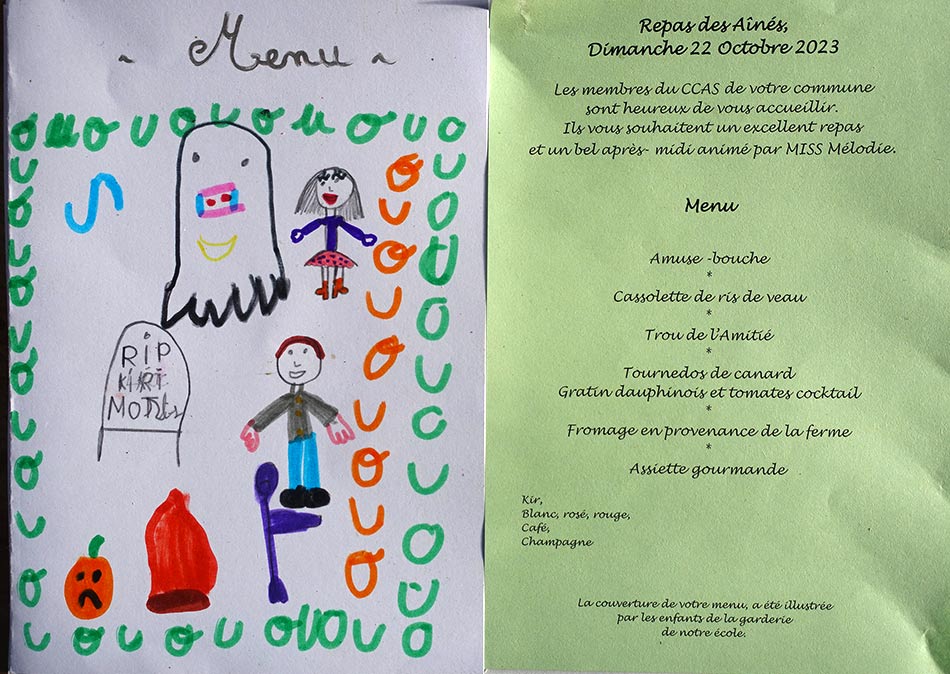 ~ Menu ~
RIP
Repas des Aînés,
Dimanche 22 Octobre 2023
Les membres du CCAS de votre commune
sont heureux de vous accueillir.
Ils vous souhaitent un excellent repas
et un bel après- midi animé par MISS Mélodie.
Menu
Amuse -bouche
*
Cassolette de ris de veau
*
Trou de l'Amitié
*
Tournedos de canard
Gratin dauphinois et tomates cocktail
*
Fromage en provenance de la ferme
*
Assiette gourmande
Kir,
Blanc, rosé, rouge,
Café,
Champagne
La couverture de votre menu, a été illustrée
par les enfants de la garderie
de notre école.